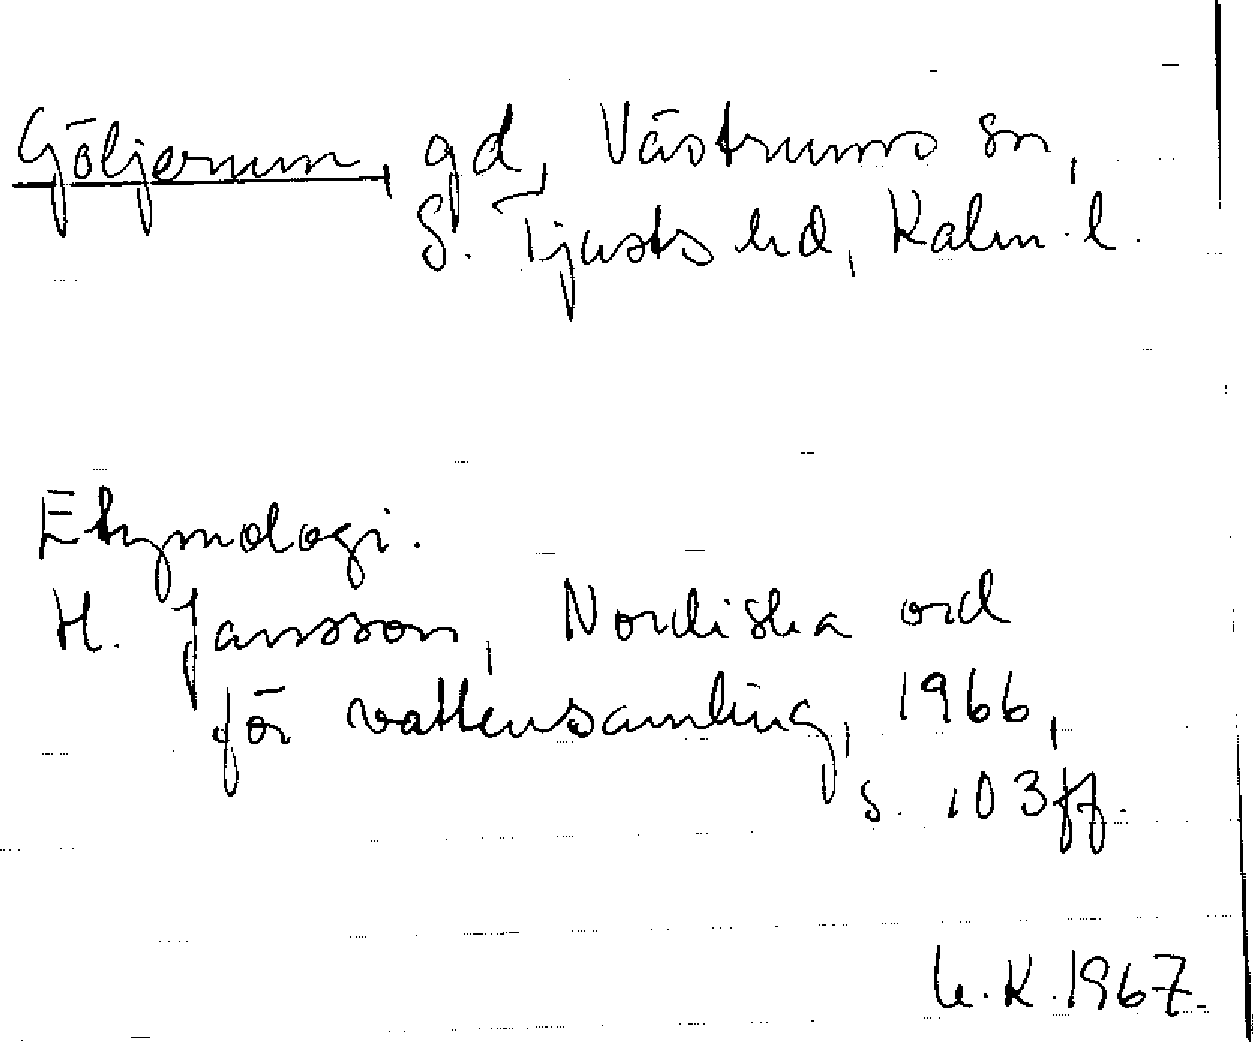 Göljerum, gd, Västrums sn,
S. Tjusts hd, Kalm. l.
Etymologi.
H. Jansson, Nordiska ord
för vattensamling, 1966,
s. 103 ff.
K. 1967.